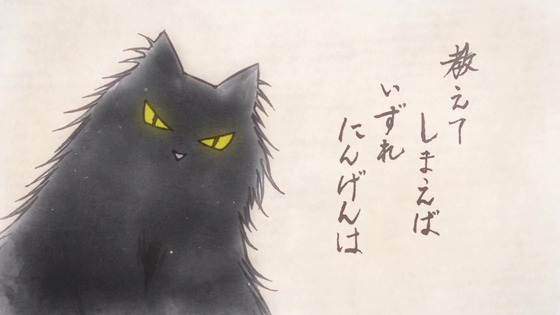 教えて
しまえば
いずれ
にんげんは